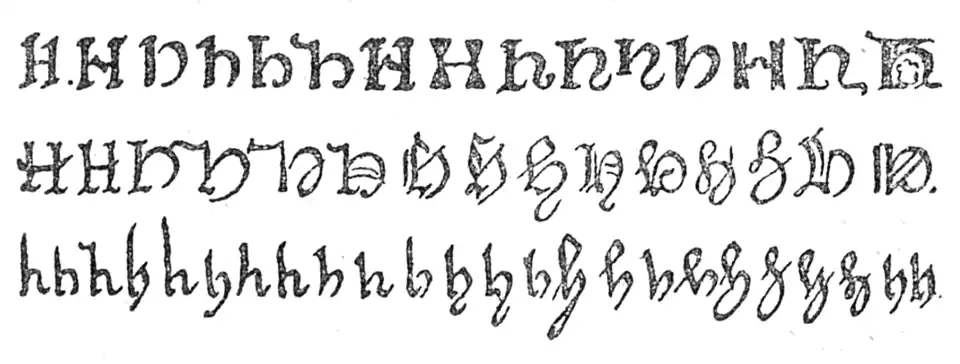 H. H H h h h H H h h h h H h H
H H H H H H H H H H H H H H H.
h h h h h h h h h h h h h h h h h h h h h h h h